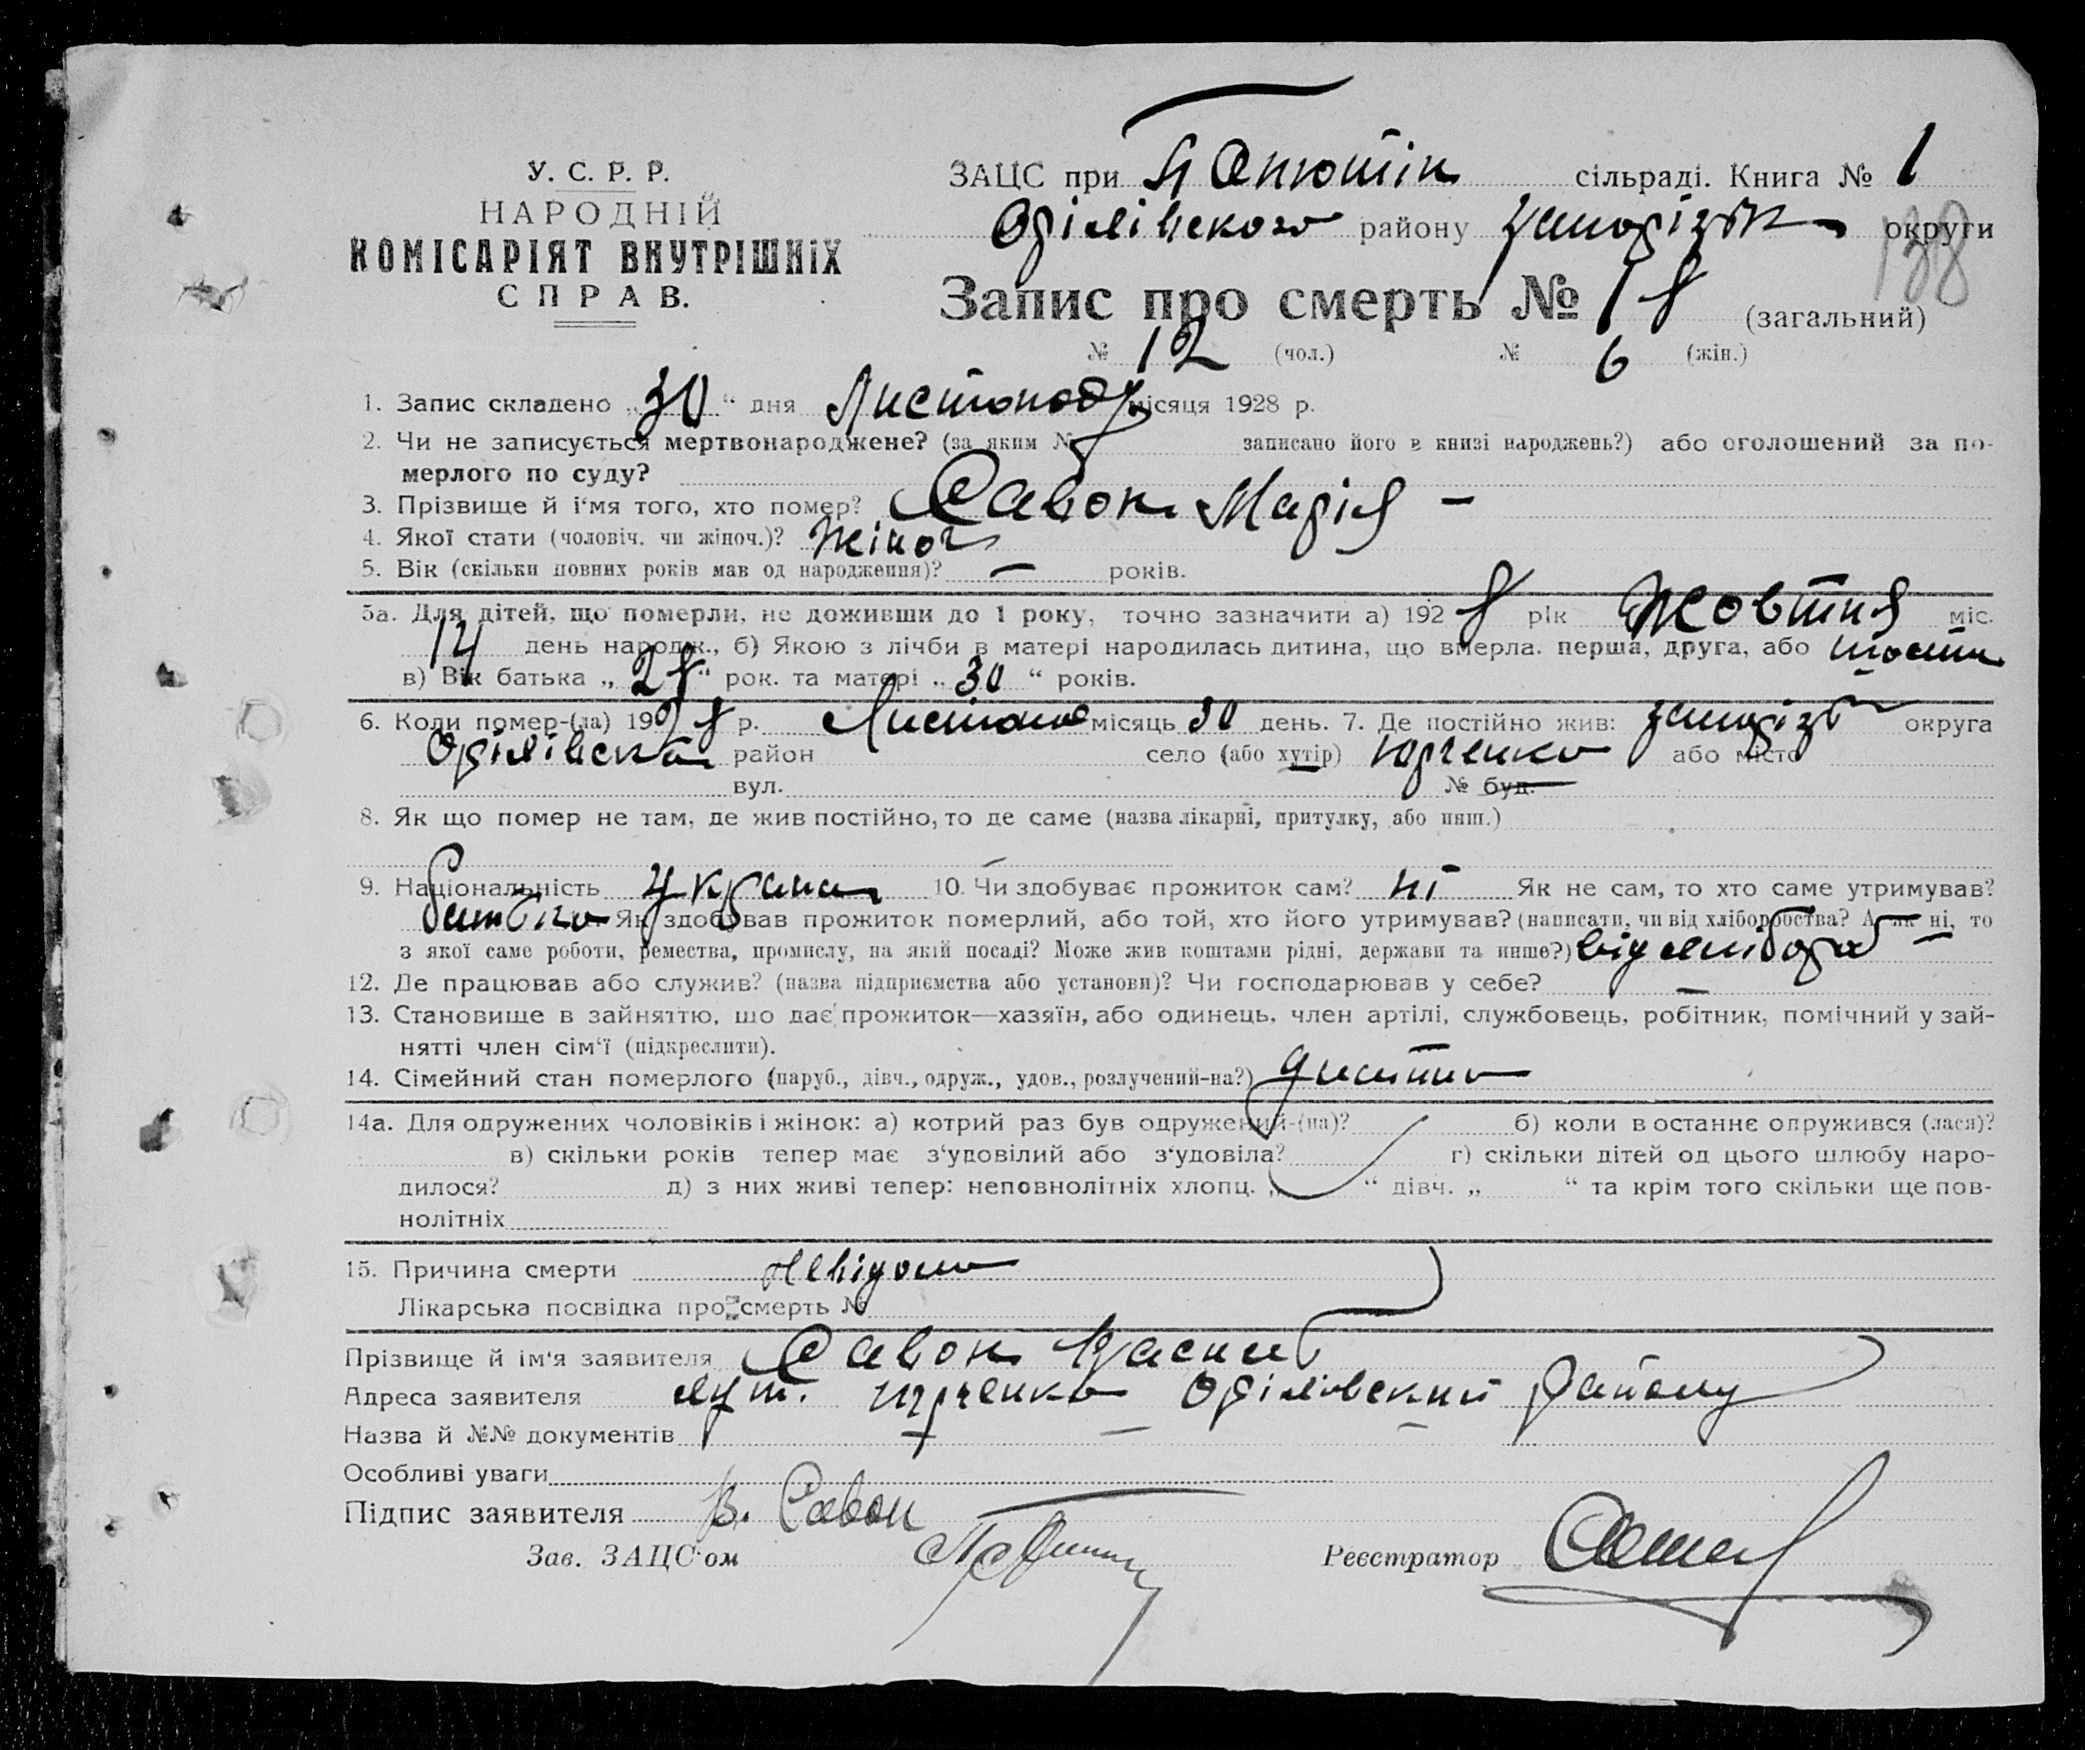 У. С. Р. Р.
НАРОДНІЙ
КОМІСАРІЯТ ВНУТРІШНІХ
СПРАВ.
ЗАЦС при сільраді. Книга № 1
району округи
138
Запис про смерть № 18 (загальний)
№ 12 (чол.) № 6 (жін.)
1. Запис складено „30“ дня Листопаду місяця 1928 р.
2. Чи не записується мертвонароджене? (за яким № записано його в книзі народжень?) або оголошений за по-
мерлого по суду?
3. Прізвище й і'мя того, хто помер? Савон Марія —
4. Якої стати (чоловіч. чи жіноч.)? жіноч
5. Вік (скільки повних років мав од народження)? — років.
5а. Для дітей, що померли, не доживши до 1 року, точно зазначити а) 1928 рік Жовтня міс.
14 день народж., б) Якою з лічби в матері народилась дитина, що вмерла. перша, друга, або
в) Вік батька „28“ рок. та матері „30“ років.
6. Коли помер-(ла) 1928 р. Листопад місяць 30 день. 7. Де постійно жив: округа
район село (або хутір) Юрченко або місто
вул. № буд.
8. Як що помер не там, де жив постійно, то де саме (назва лікарні, притулку, або инш.)
9. Національність Українa 10. Чи здобуває прожиток сам? ні Як не сам, то хто саме утримував?
Батько Як здобував прожиток померлий, або той, хто його утримував? (написати, чи від хліборобства? А як ні, то
з якої саме роботи, ремества, промислу, на якій посаді? Може жив коштами рідні, держави та инше?) від
12. Де працював або служив? (назва підприємства або установи)? Чи господарював у себе? —
13. Становище в зайняттю, що дає прожиток—хазяїн, або одинець, член артілі, службовець, робітник, помічний у зай-
нятті член сім'ї (підкреслити).
14. Сімейний стан померлого (паруб., дівч., одруж., удов., розлучений-на?) дитина
14а. Для одружених чоловіків і жінок: а) котрий раз був одружений-(на)? б) коли востаннє одружився (лася)?
в) скільки років тепер має з'удовілий або з'удовіла? г) скільки дітей од цього шлюбу наро-
дилося? д) з них живі тепер: неповнолітніх хлопц. „ “ дівч. „ “ та крім того скільки ще пов-
нолітніх
15. Причина смерти невідома
Лікарська посвідка про смерть №
Прізвище й ім'я заявителя Савон Василь
Адреса заявителя хут. Юрченко Оріхівский району
Назва й №№ документів — — —
Особливі уваги
Підпис заявителя В. Савон
Зав. ЗАЦС'ом Реєстратор